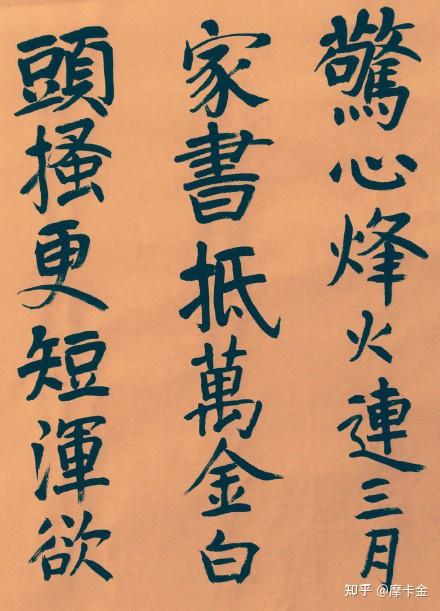 驚心烽火連三月
家書抵萬金白
頭搔更短渾欲
知乎 @摩卡金